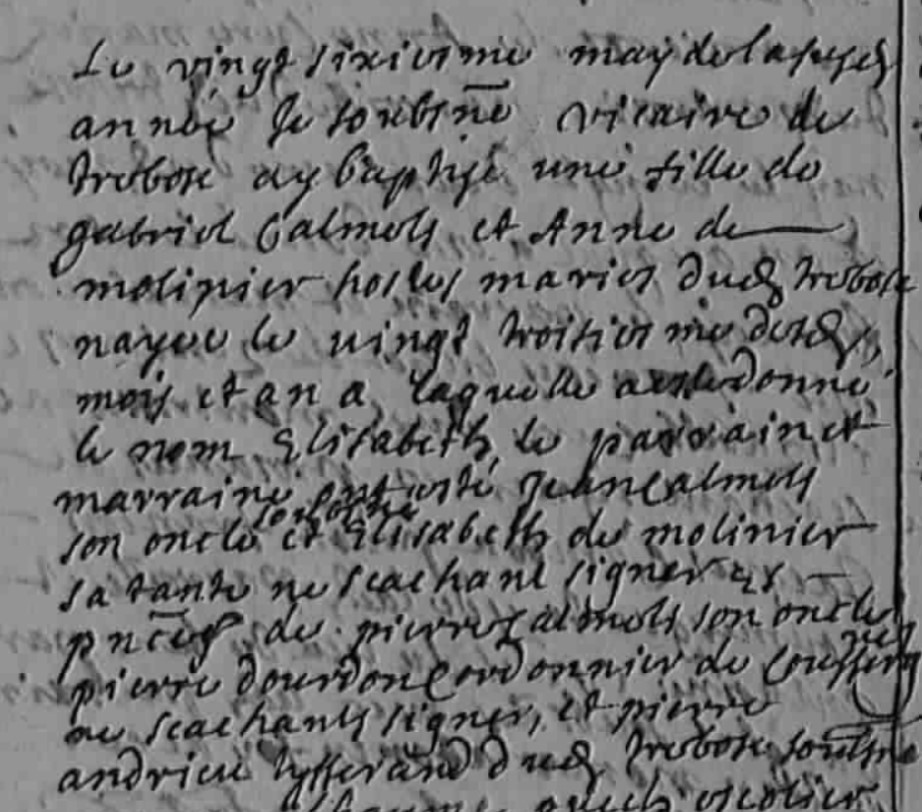 Le vingt sixiesme may de la susd
année Je soubsne vicaire de
trebose ay baptisé une fille de
gabriel Calmels et Anne de
molinier hostes mariés dud trebose
nayee le vingt troisiesme desd
mois et an a laquelle a esté donné
le nom Elisabeth, le parrain et
marraine ont esté Jean Calmels
son oncle et Elisabeth de molinier
sa tante ne scachant signer es
pnces de pierre Calmels son oncle
pierre dourdon Cordonnier de
ne scachants signer, et pierre
andrieu tysserand dud trebose soubsne